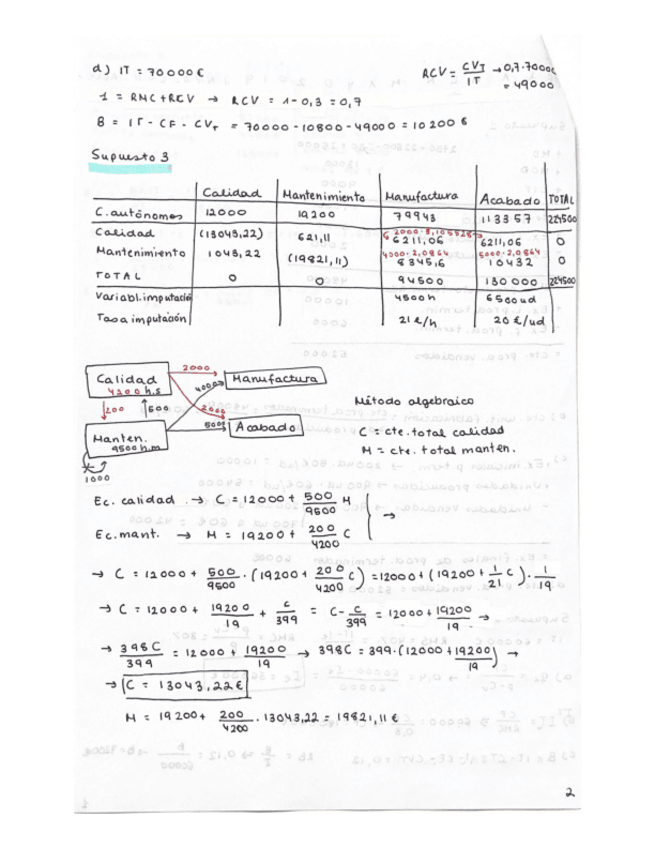 d) IT = 70000 €
RCV = CVT / IT → 0,7·7000c = 49000
1 = RMC + RCV → RCV = 1 - 0,3 = 0,7
B = IT - CF - CVT = 70000 - 10800 - 49000 = 10200 €
Supuesto 3
Calidad Mantenimiento Manufactura Acabado TOTAL
C. autónomos 12000 19200 79943 113357 224500
2000·3,105528→
Calidad (13043,22) 621,11 6211,06 6211,06 0
4000·2,0864 5000·2,0864
Mantenimiento 1043,22 (19821,11) 8345,6 10432 0
TOTAL 0 0 94500 130000 224500
Variabl. imputación 4500h 6500ud
Tasa imputación 21€/h 20€/ud
2000
Calidad 4200 h.s Manufactura
4000
200 500 2000
5000 Acabado
Manten. 9500 h.m
1000
Método algebraico
C = cte. total calidad
M = cte. total manten.
Ec. calidad → C = 12000 + 500/9500 M
→
Ec. mant. → M = 19200 + 200/4200 C
→ C = 12000 + 500/9500 · (19200 + 200/4200 C) = 12000 + (19200 + 1/21 C) · 1/19
→ C = 12000 + 19200/19 + C/399 = C - C/399 = 12000 + 19200/19 →
→ 398C/399 = 12000 + 19200/19 → 398C = 399·(12000 + 19200/19) →
→ C = 13043,22 €
M = 19200 + 200/4200 · 13043,22 = 19821,11 €
2